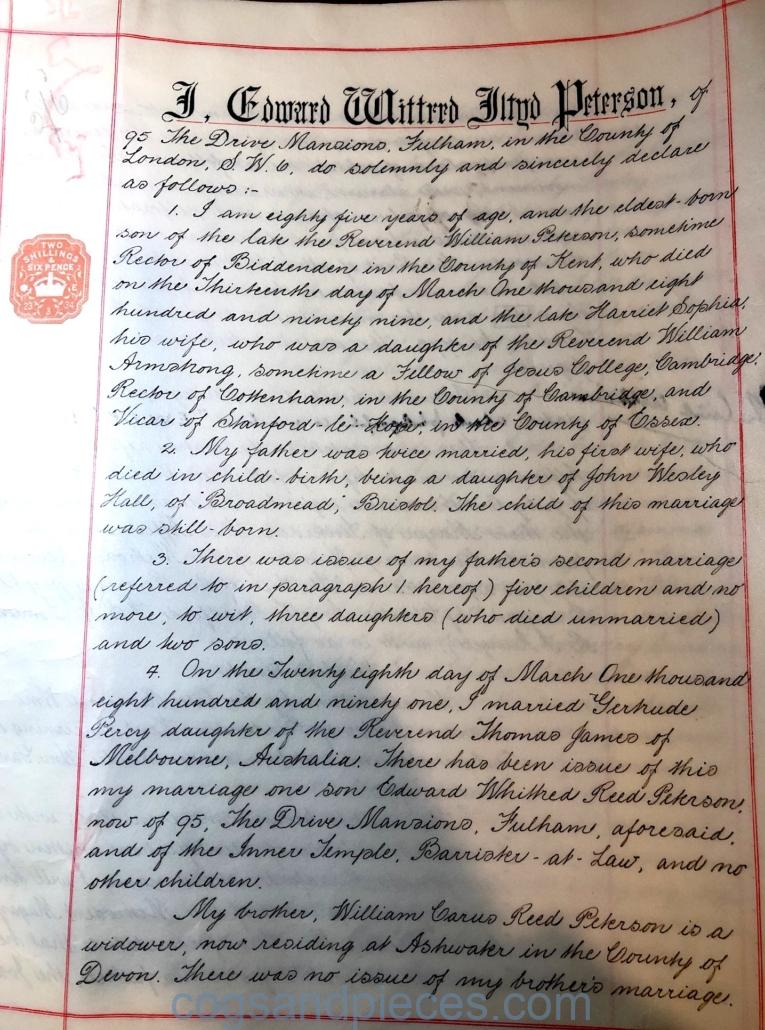 I, Edward Wittred Iltyd Peterson, of
95 The Drive Mansions, Fulham, in the County of
London, S.W.6, do solemnly and sincerely declare
as follows :-
1. I am eighty five years of age, and the eldest-born
son of the late the Reverend William Peterson, sometime
Rector of Biddenden in the County of Kent, who died
on the Thirteenth day of March One thousand eight
hundred and ninety nine, and the late Harriet Sophia,
his wife, who was a daughter of the Reverend William
Armstrong, sometime a Fellow of Jesus College, Cambridge,
Rector of Cottenham, in the County of Cambridge, and
Vicar of Stanford-le-Hope, in the County of Essex.
2. My father was twice married, his first wife, who
died in child-birth, being a daughter of John Wesley
Hall, of "Broadmead", Bristol. The child of this marriage
was still-born.
3. There was issue of my father's second marriage
(referred to in paragraph 1 hereof) five children and no
more, to wit, three daughters (who died unmarried)
and two sons.
4. On the Twenty eighth day of March One thousand
eight hundred and ninety one, I married Gertrude
Percy daughter of the Reverend Thomas James of
Melbourne, Australia. There has been issue of this
my marriage one son Edward Whitred Reed Peterson,
now of 95, The Drive Mansions, Fulham, aforesaid,
and of the Inner Temple, Barrister-at-Law, and no
other children.
My brother, William Carus Reed Peterson is a
widower, now residing at Ashwater in the County of
Devon. There was no issue of my brother's marriage.
TWO
SHILLINGS
&
SIX PENCE
E
23 3 34
cogsandpieces.com